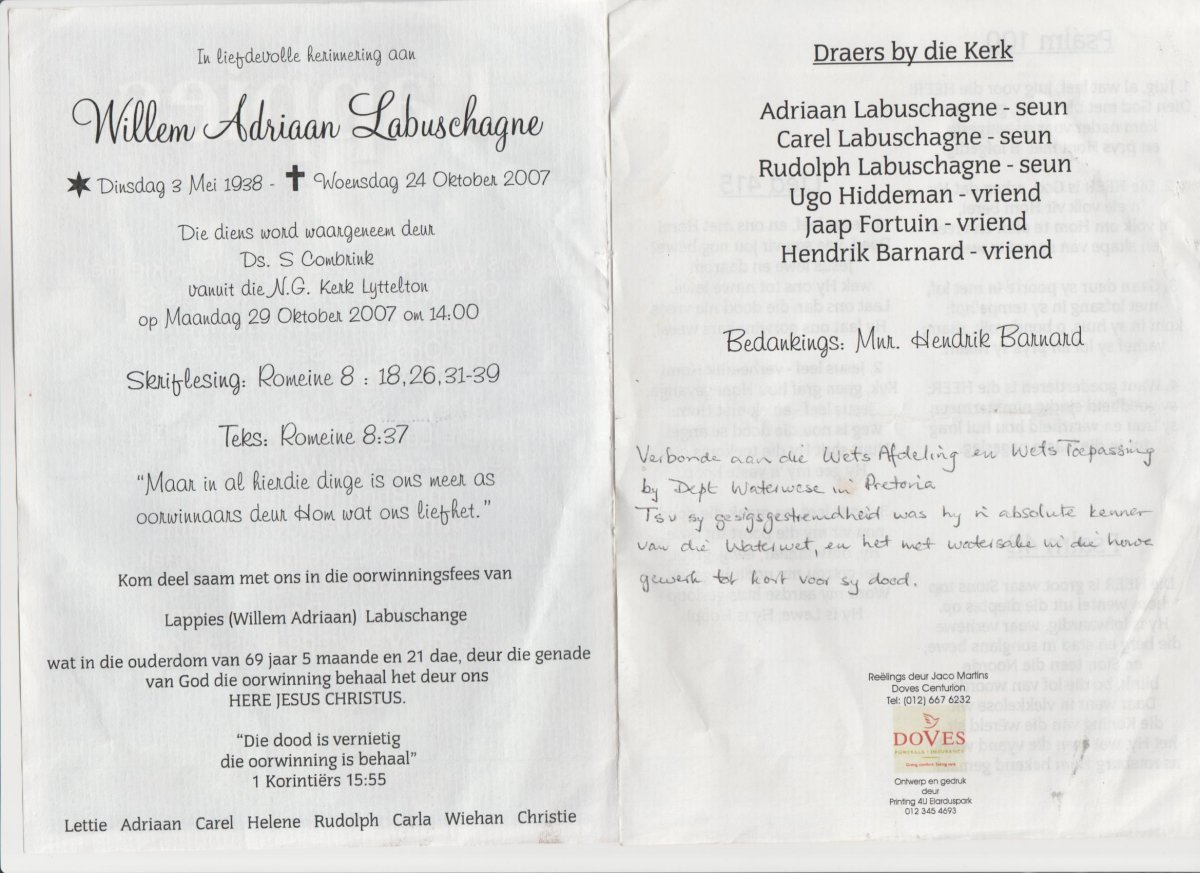 In liefdevolle herinnering aan
Willem Adriaan Labuschagne
Dinsdag 3 Mei 1938 - Woensdag 24 Oktober 2007
Die diens word waargeneem deur
Ds. S Combrink
vanuit die N.G. Kerk Lyttelton
op Maandag 29 Oktober 2007 om 14.00
Skriflesing: Romeine 8 : 18,26,31-39
Teks: Romeine 8:37
“Maar in al hierdie dinge is ons meer as
oorwinnaars deur Hom wat ons liefhet.”
Kom deel saam met ons in die oorwinningsfees van
Lappies (Willem Adriaan) Labuschange
wat in die ouderdom van 69 jaar 5 maande en 21 dae, deur die genade
van God die oorwinning behaal het deur ons
HERE JESUS CHRISTUS.
“Die dood is vernietig
die oorwinning is behaal”
1 Korintiërs 15:55
Lettie Adriaan Carel Helene Rudolph Carla Wiehan Christie
Draers by die Kerk
Adriaan Labuschagne - seun
Carel Labuschagne - seun
Rudolph Labuschagne - seun
Ugo Hiddeman - vriend
Jaap Fortuin - vriend
Hendrik Barnard - vriend
Bedankings: Mnr. Hendrik Barnard
Verbonde aan die Wets Afdeling en Wets Toepassing
by Dept Waterwese in Pretoria
Tsv sy gesigsgestremdheid was hy 'n absolute kenner
van die Waterwet, en het met watersake in die howe
gewerk tot kort voor sy dood.
Reëlings deur Jaco Martins
Doves Centurion
Tel: (012) 667 6232
DOVES
FUNERALS • INSURANCE
Ontwerp en gedruk
deur
Printing 4U Elarduspark
012 345 4693